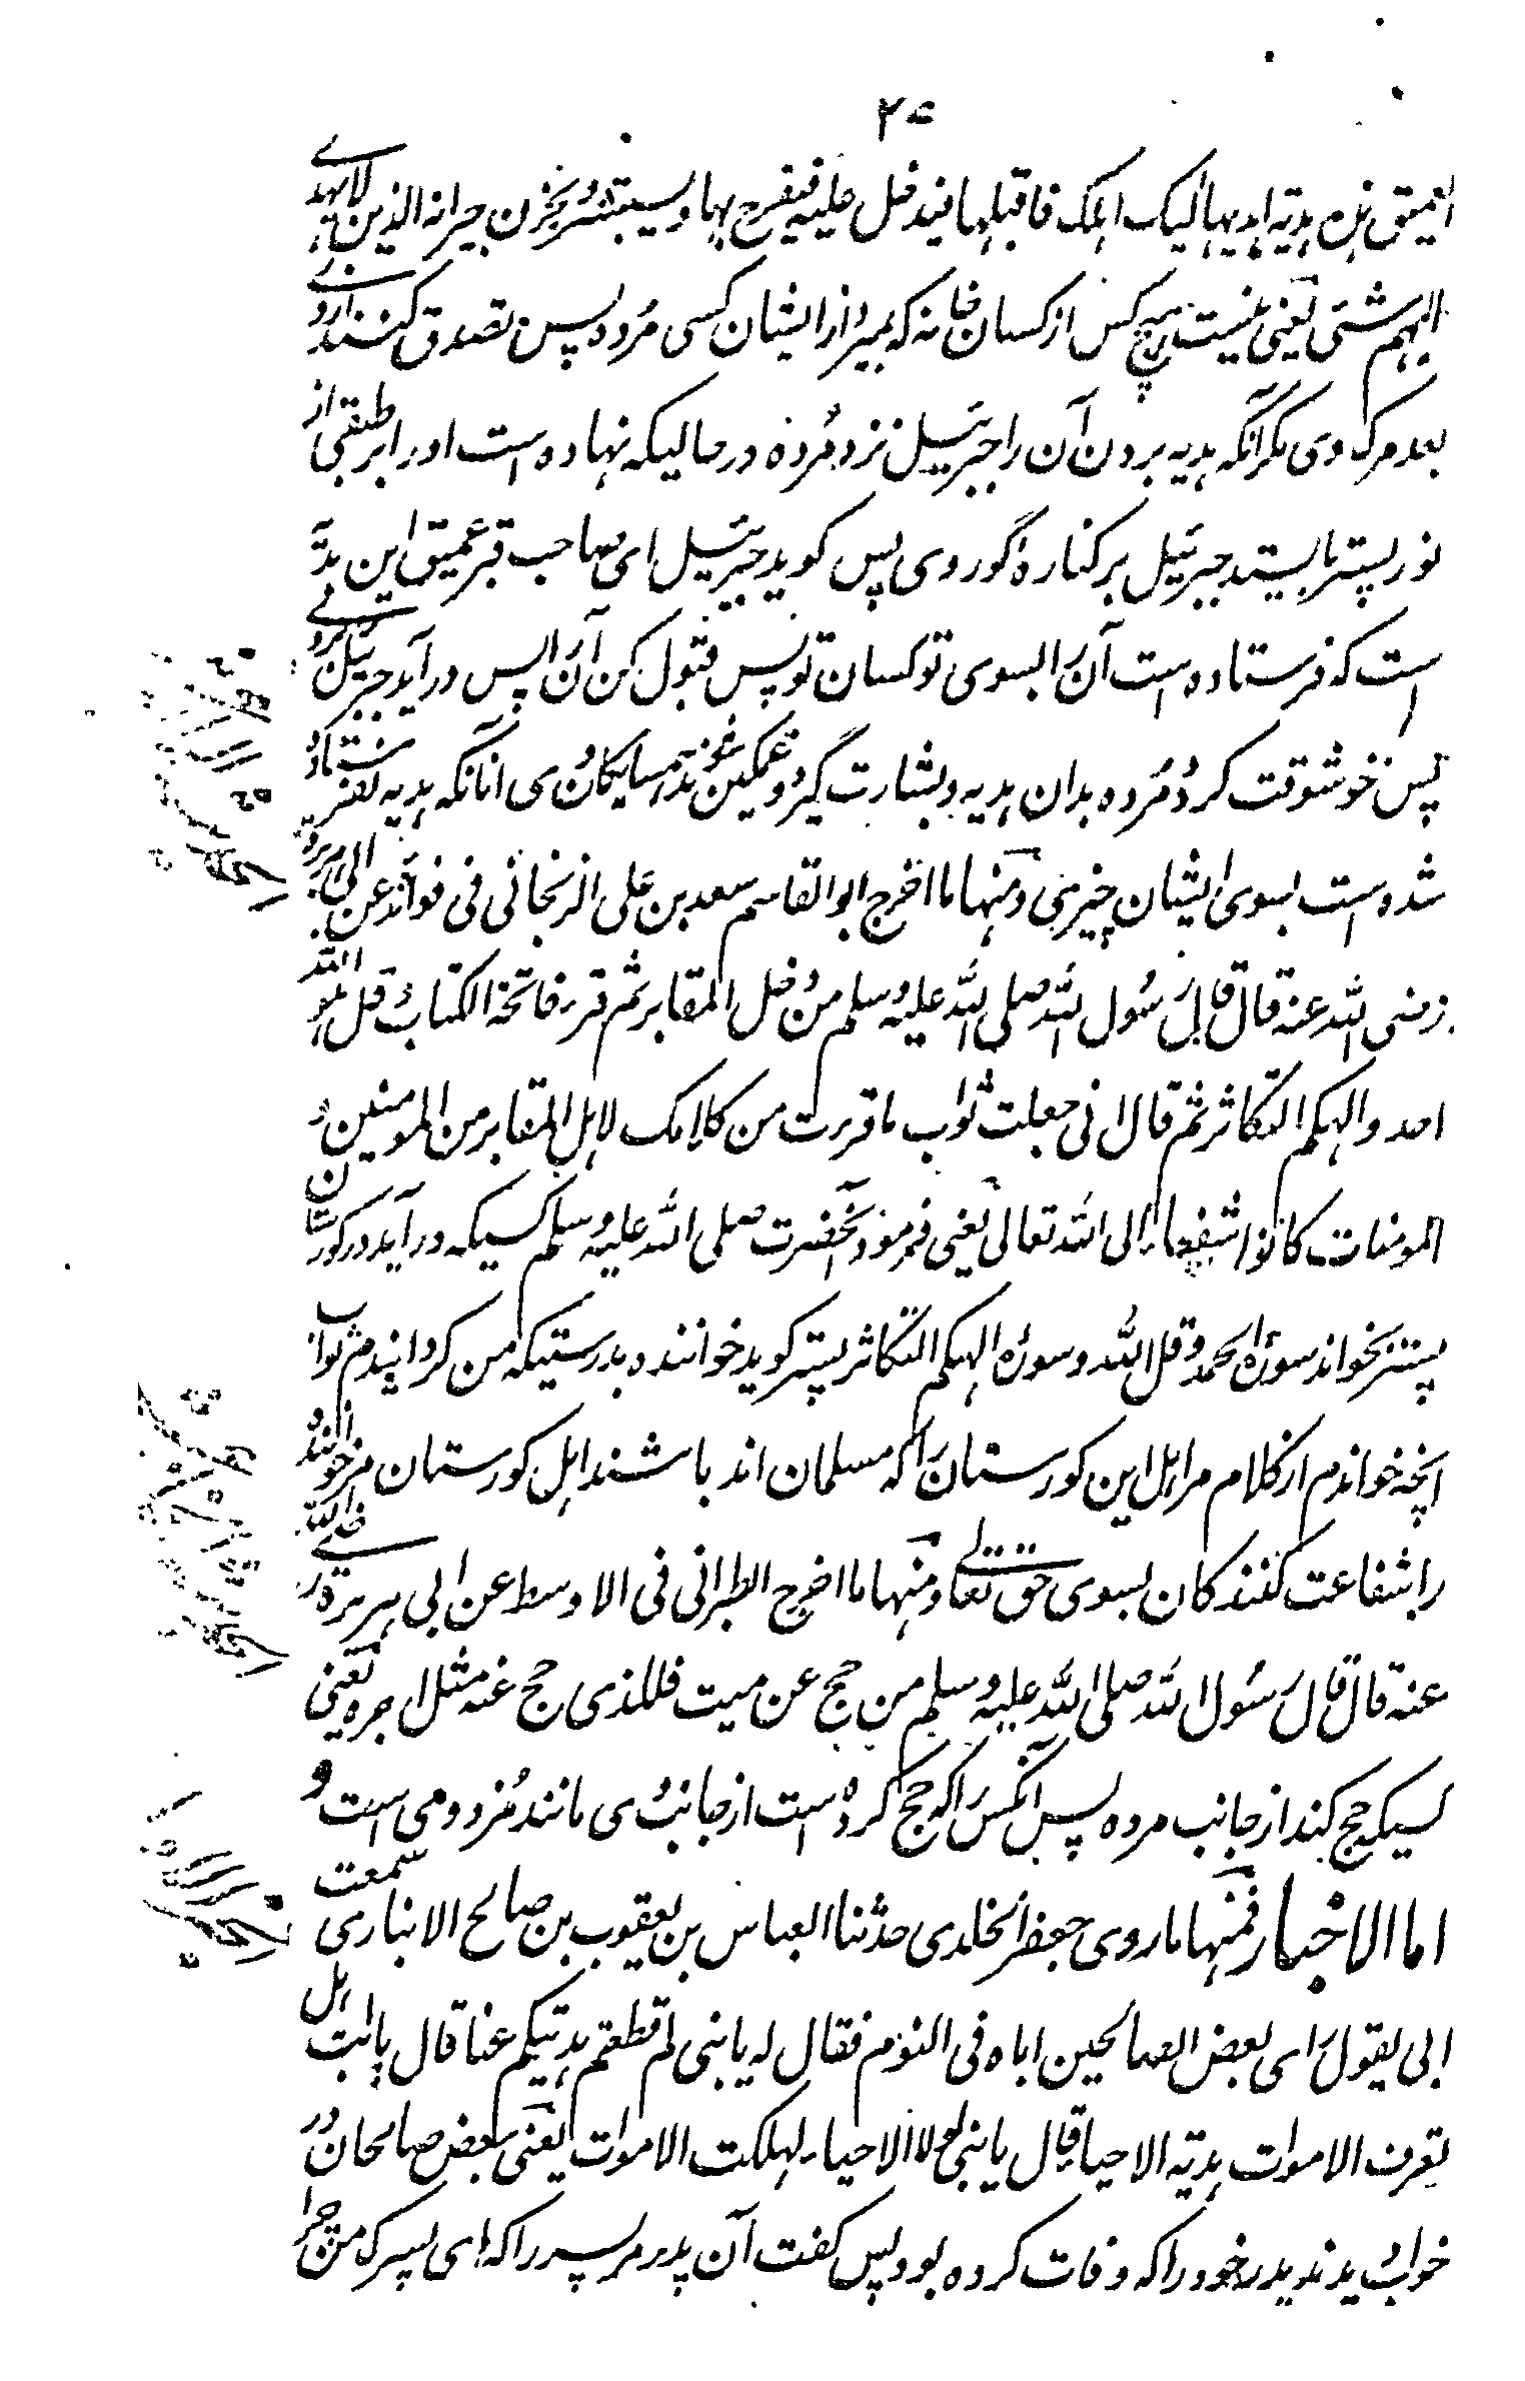 ٢٤
العمیق هذه هدیة اهدیها الیک اهلک فاقبلها فیدخل علیه فیفرح بها و یستبشر و یحزن جیرانه الذین لا یهدی
الیهم شئ یعنی نیست هیچ کس از کسان خانه که بمیرد از ایشان کسی مرده پس تصدق کنند از وی
بعد مرگ وی مگر آنکه هدیه بردن آن را جبرئیل نزد مرده در حالیکه نهاده است او را بر طبقی از
نور پستر بایستد جبرئیل بر کنارهٔ گور وی پس کوید جبرئیل ای صاحب قبر عمیق این هدیه
است که فرستاده است آن را بسوی تو کسان تو پس قبول کن آن را پس در آید جبرئیل بر وی
پس خوشوقت کرد مرده بدان هدیه و بشارت گیرد و غمگین شوند همسایکان وی آنانکه هدیه نفرستاده
شده است بسوی ایشان چیزی و منها ما اخرج ابو القاسم سعد بن علی الزنجانی فی فوائده عن ابی هریرة
رضی الله عنه قال قال رسول الله صلی الله علیه وسلم من دخل المقابر ثم قرء فاتحة الکتاب و قل هو الله
احد و الهکم التکاثر ثم قال انی جعلت ثواب ما قرءت من کلامک لاهل المقابر من المومنین و
المومنات کانوا شفعاء الی الله تعالی یعنی فرمود آنحضرت صلی الله علیه وسلم کسیکه در آید در کورستان
پستر بخواند سورهٔ الحمد و قل الله و سورهٔ الهکم التکاثر پستر کوید خواننده بدرستیکه من کردانیدم ثواب
آنچه خواندم از کلام مر اهل این کورستان را که مسلمان اند باشند اهل کورستان مر خواننده
را شفاعت کنندکان بسوی حق تعالی و منها ما اخرج الطبرانی فی الاوسط عن ابی هریرة رضی الله
عنه قال قال رسول الله صلی الله علیه وسلم من حج عن میت فللذی حج عنه مثل اجره یعنی
کسیکه حج کند از جانب مرده پس آنکس را که حج کرده است از جانب وی مانند مزد و می است و
اما الاخبار فمنها ما روی جعفر الخلدی حدثنا العباس بن یعقوب بن صالح الانباری سمعت
ابی یقول رای بعض الصالحین اباه فی النوم فقال له یا بنی لم قطعتم هدیتکم عنا قال یا ابت هل
تعرف الاموات هدیة الاحیاء قال یا بنی لولا الاحیاء لهلکت الاموات یعنی بعض صالحان در
خواب دیدند پدر خود را که وفات کرده بود پس کفت آن پدر مر پسر را که ای پسرک من چرا